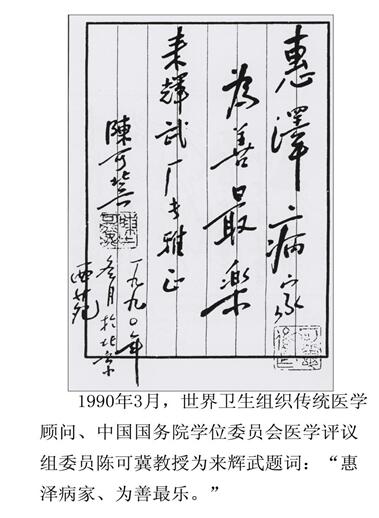 惠澤病家
為善最樂
来輝武厂长雅正
陳可冀
一九九〇年
叁月於北京
西苑
1990年3月，世界卫生组织传统医学
顾问、中国国务院学位委员会医学评议
组委员陈可冀教授为来辉武题词：“惠
泽病家、为善最乐。”